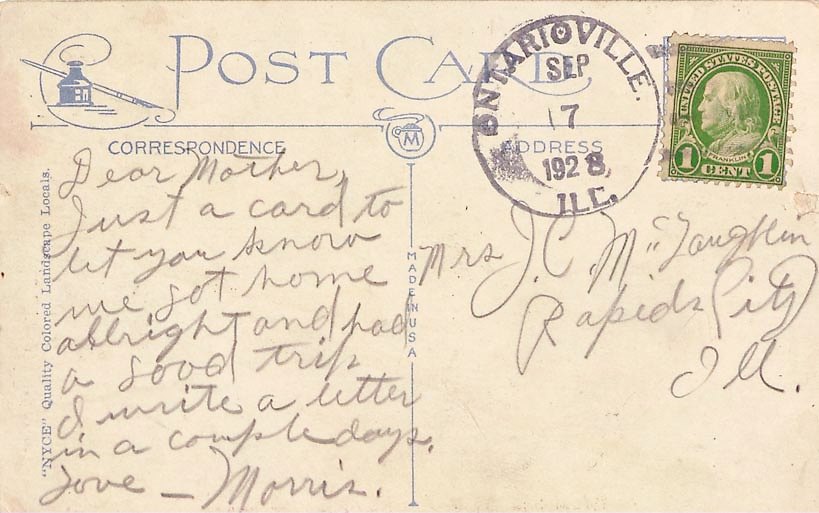 POST CARD
ONTARIOVILLE.
SEP
17
1928,
ILL.
UNITED STATES POSTAGE
FRANKLIN
1 CENT 1
CORRESPONDENCE
M
ADDRESS
"NYCE" Quality Colored Landscape Locals.
MADE IN USA
Dear Mother,
Just a card to
let you know
we got home
allright and had
a good trip
I write a letter
in a couple days.
Love – Morris.
Mrs J.C. McLaughlin
Rapids City
Ill.